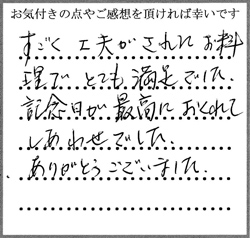 お気付きの点やご感想を頂ければ幸いです
すごく工夫がされたお料
理でとても満足でした。
記念日が最高におくれて
しあわせでした。
ありがとうございました。